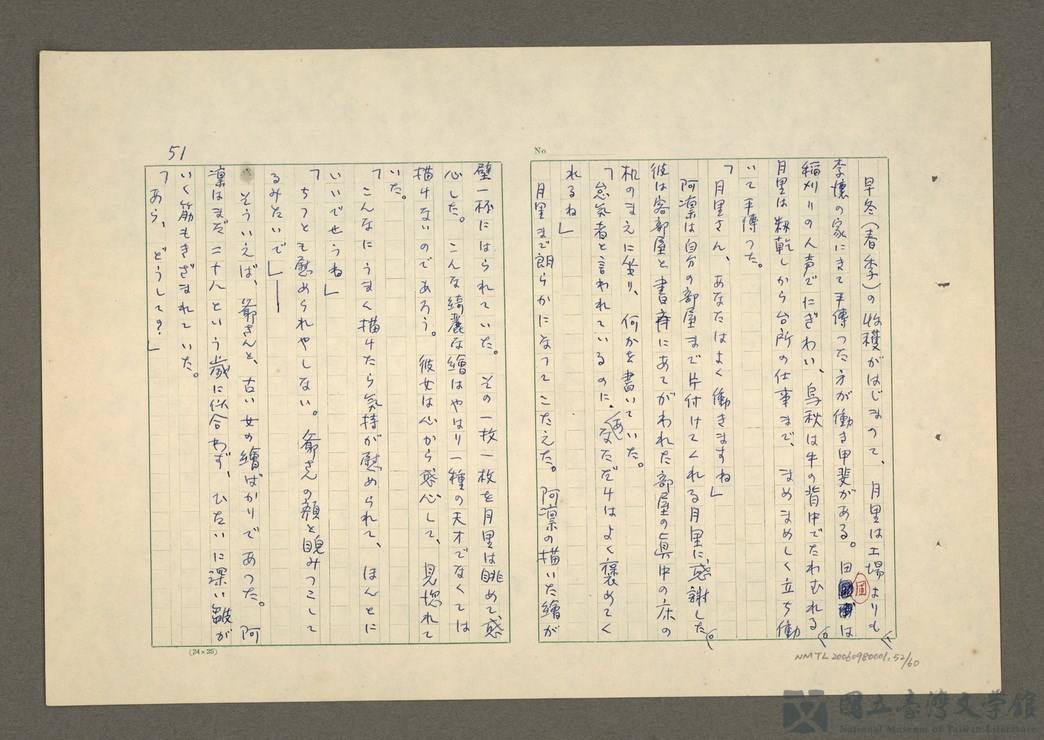 No
早冬(春季)の收穫がはじまつて、月里は工場よりも
李懐の家にきて手傳つた方が働き甲斐がある。田圃は
稲刈りの人声でにぎわい、烏秋は牛の背中でたわむれる。
月里は籾乾しから台所の仕事まで、まめまめしく立ち働
いて手傳つた。
「月里さん、あなたはよく働きますね」
阿凜は自分の部屋まで片付けてくれる月里に感謝した。
彼は客部屋と書斉にあてがわれた部屋の真中の床の
机のまえに坐り、何かを書いていた。
「怠気者と言われているのに、あなただけはよく褒めてく
れるね」
月里まで朗らかになつてこたえた。阿凜の描いた繪が
51
壁一杯にはられていた。その一枚一枚を月里は眺めて感
心した。こんな綺麗な繪はやはり一種の天才でなくては
描けないのであろう。彼女は心から感心して、見惚れて
いた。
「こんなにうまく描けたら気持が慰められて、ほんとに
いいでせうね」
「ちつとも慰められやしない。爺さんの顔と睨みつこして
るみたいで」――
そういえば、爺さんと、古い女の繪ばかりであつた。阿
凜はまだ二十八という歳に似合わず、ひたいに深い皺が
いく筋もきざまれていた。
「あら、どうして?」
(24×25)
NMTL20060980001.52/60
國立臺灣文學館
National Museum of Taiwan Literature